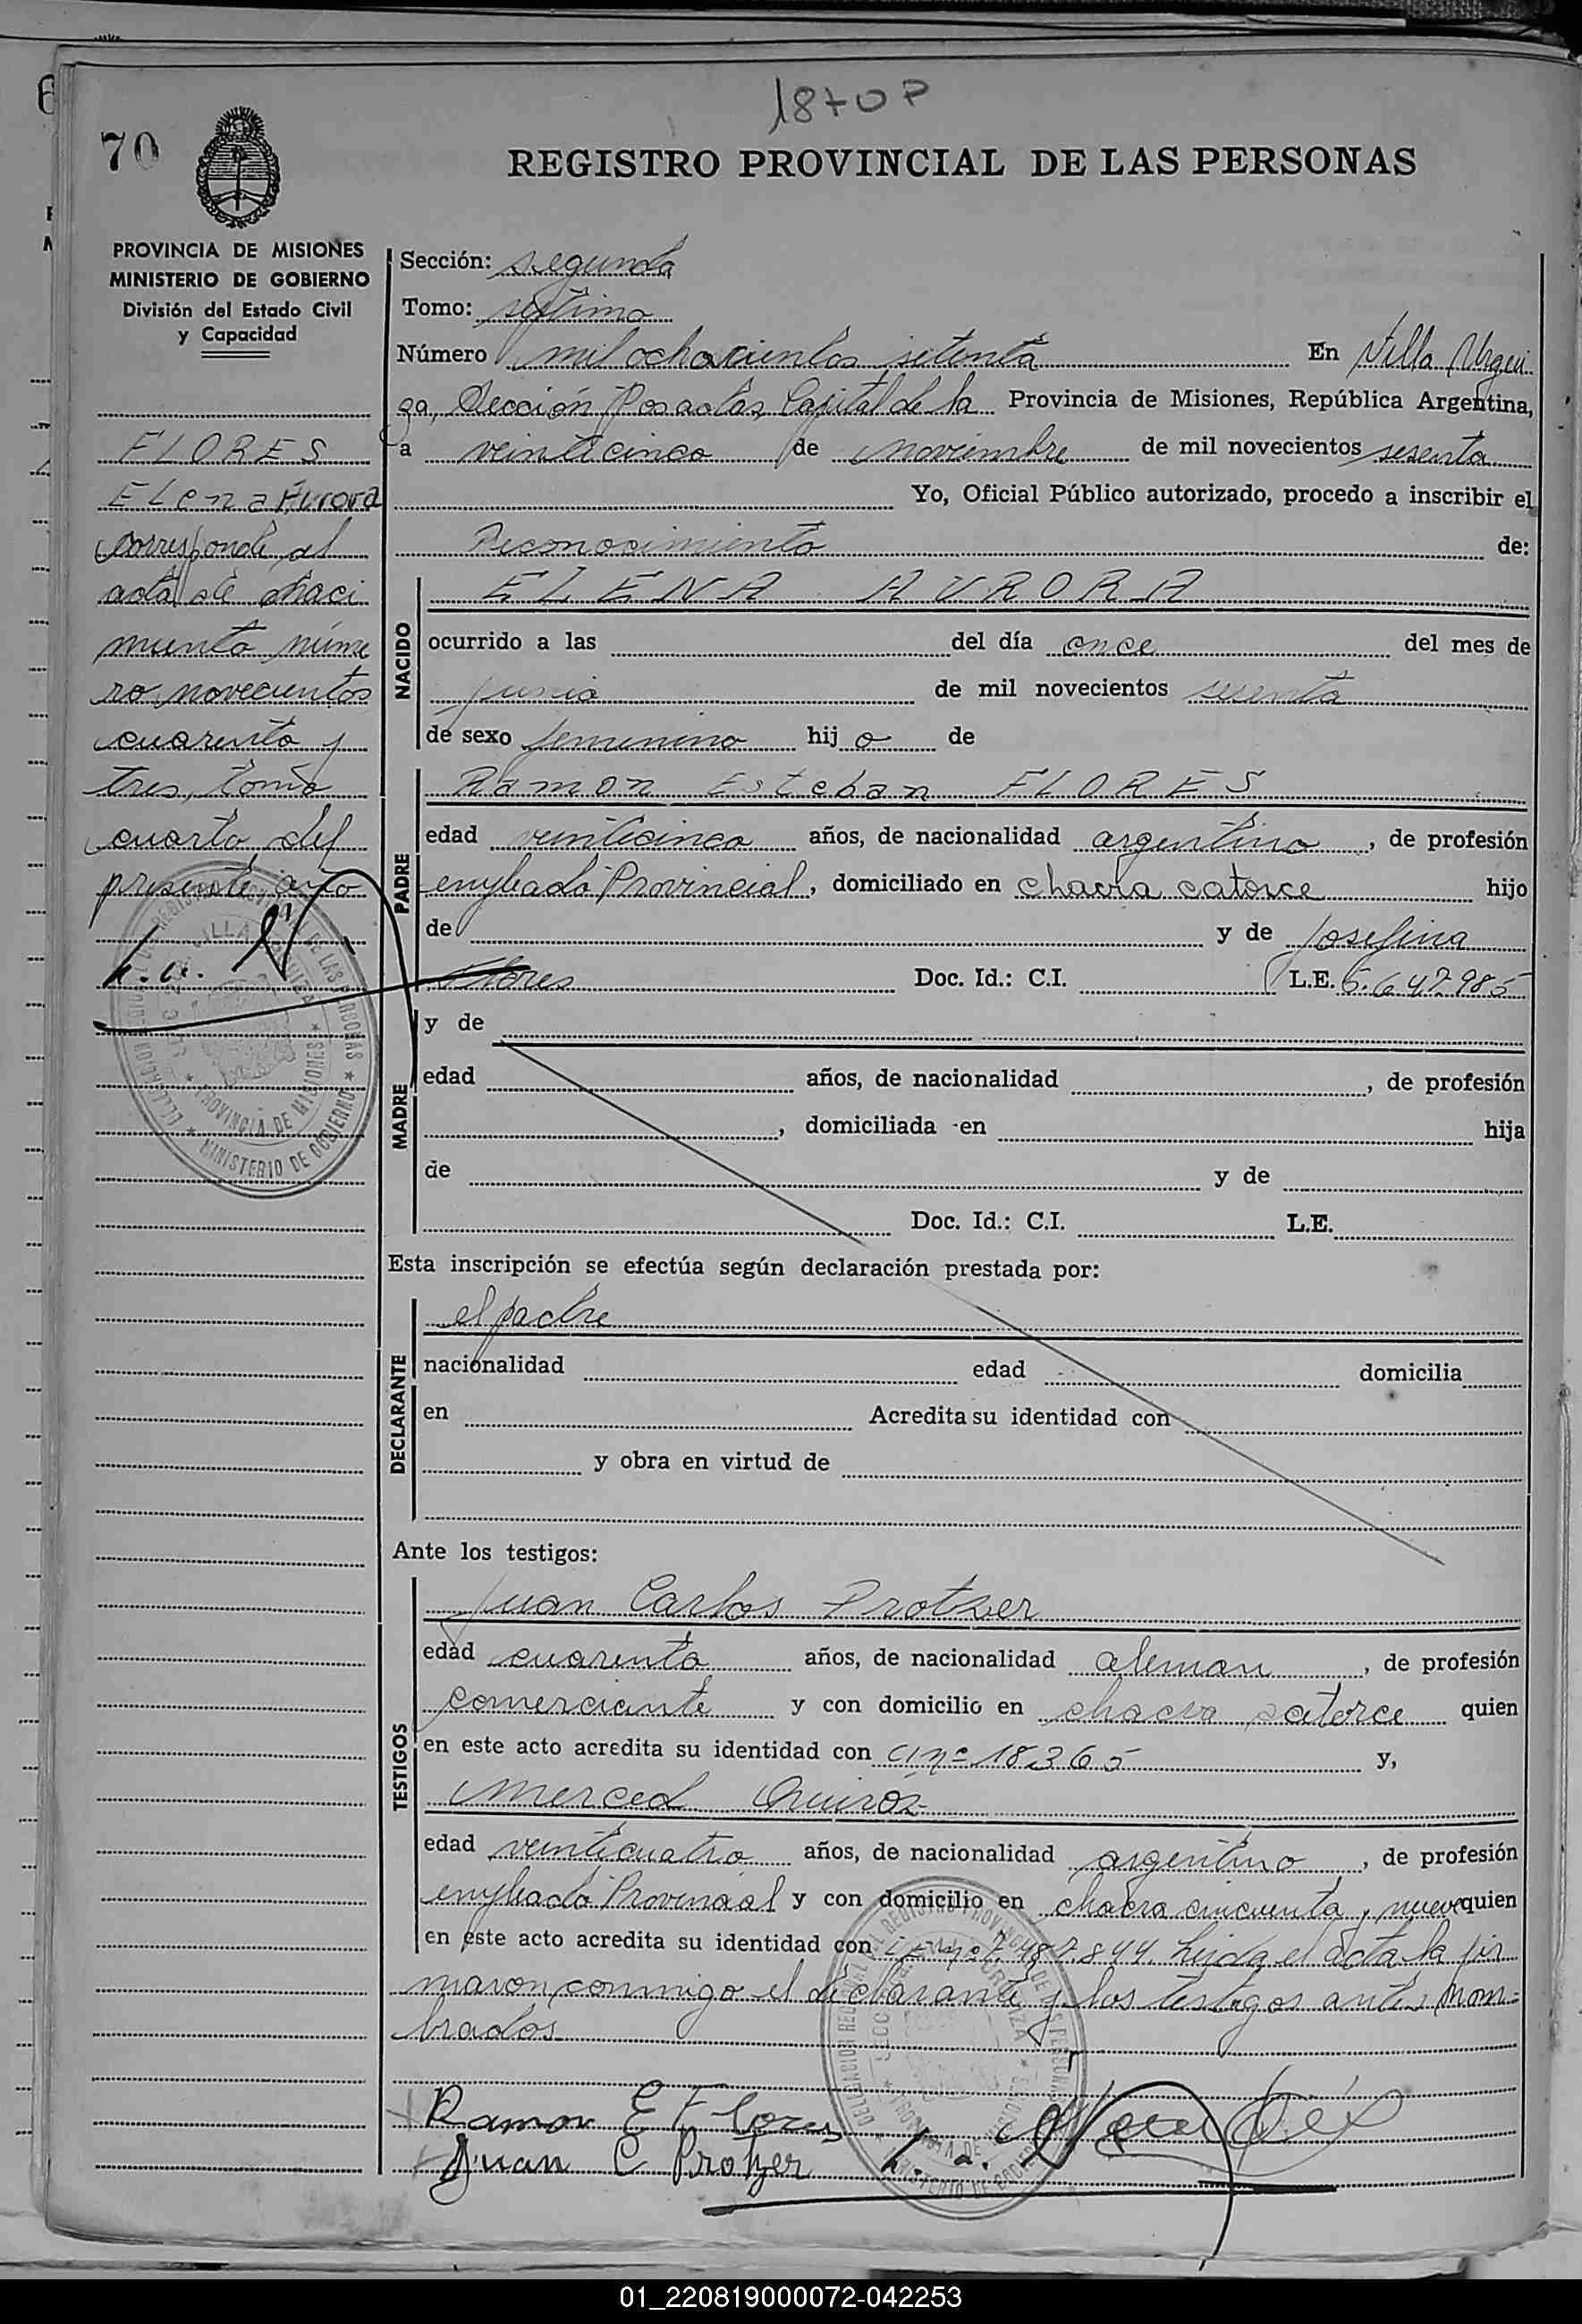 1870 P
70
REGISTRO PROVINCIAL DE LAS PERSONAS
PROVINCIA DE MISIONES
MINISTERIO DE GOBIERNO
División del Estado Civil
y Capacidad
FLORES
Elena Aurora
corresponde al
acta de naci
miento núme
ro novecientos
cuarenta y
tres, tomo
cuarto del
presente año
Sección: segunda
Tomo: septimo
Número mil ochocientos setenta En Villa Urqui
za, Sección Posadas, Capital de la Provincia de Misiones, República Argentina,
a veinticinco de noviembre de mil novecientos sesenta
Yo, Oficial Público autorizado, procedo a inscribir el
Reconocimiento de:
NACIDO
ELENA AURORA
ocurrido a las del día once del mes de
junio de mil novecientos sesenta
de sexo femenino hij a de
PADRE
Ramon Esteban FLORES
edad veinticinco años, de nacionalidad argentino, de profesión
empleado Provincial, domiciliado en chacra catorce hijo
de y de Josefina
Flores Doc. Id.: C.I. L.E. 5.647.985
MADRE
y de
edad años, de nacionalidad , de profesión
, domiciliada en hija
de y de
Doc. Id.: C.I. L.E.
Esta inscripción se efectúa según declaración prestada por:
DECLARANTE
el padre
nacionalidad edad domicilia
en Acredita su identidad con
y obra en virtud de
Ante los testigos:
TESTIGOS
Juan Carlos Protzer
edad cuarenta años, de nacionalidad aleman, de profesión
comerciante y con domicilio en chacra catorce quien
en este acto acredita su identidad con CI nº 18.365 y,
Merced Quiróz
edad veinticuatro años, de nacionalidad argentino, de profesión
empleado Provincial y con domicilio en chacra cincuenta y nueve quien
en este acto acredita su identidad con LE nº 7.487.844. Leida el acta la fir
maron conmigo el declarante y los testigos antes nom-
brados
Ramon E Flores
Juan C Protzer
01_220819000072-042253